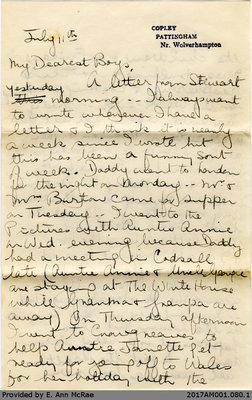 COPLEY
PATTINGHAM
Nr. Wolverhampton
July 11th
My Dearest Boys,
A letter from Stewart
yesterday
this morning -- I always want
to write whenever I have a
letter & I think it's nearly
a week since I wrote but
this has been a funny sort
of week. Daddy went to London
for the night on Monday -- Mr &
Mrs Burton came to supper
on Tuesday -- I went to the
Pictures with Auntie Annie
on Wed. evening because Daddy
had a meeting in Codsall
late (Auntie Annie & Uncle George
are staying at The White House
while Granma & Granpa are
away) On Thursday afternoon
I went to Craigneaves to
help Auntie Janette get
ready for going off to Wales
for her holiday with the
Provided by E. Ann McRae
2017AM001.080.1